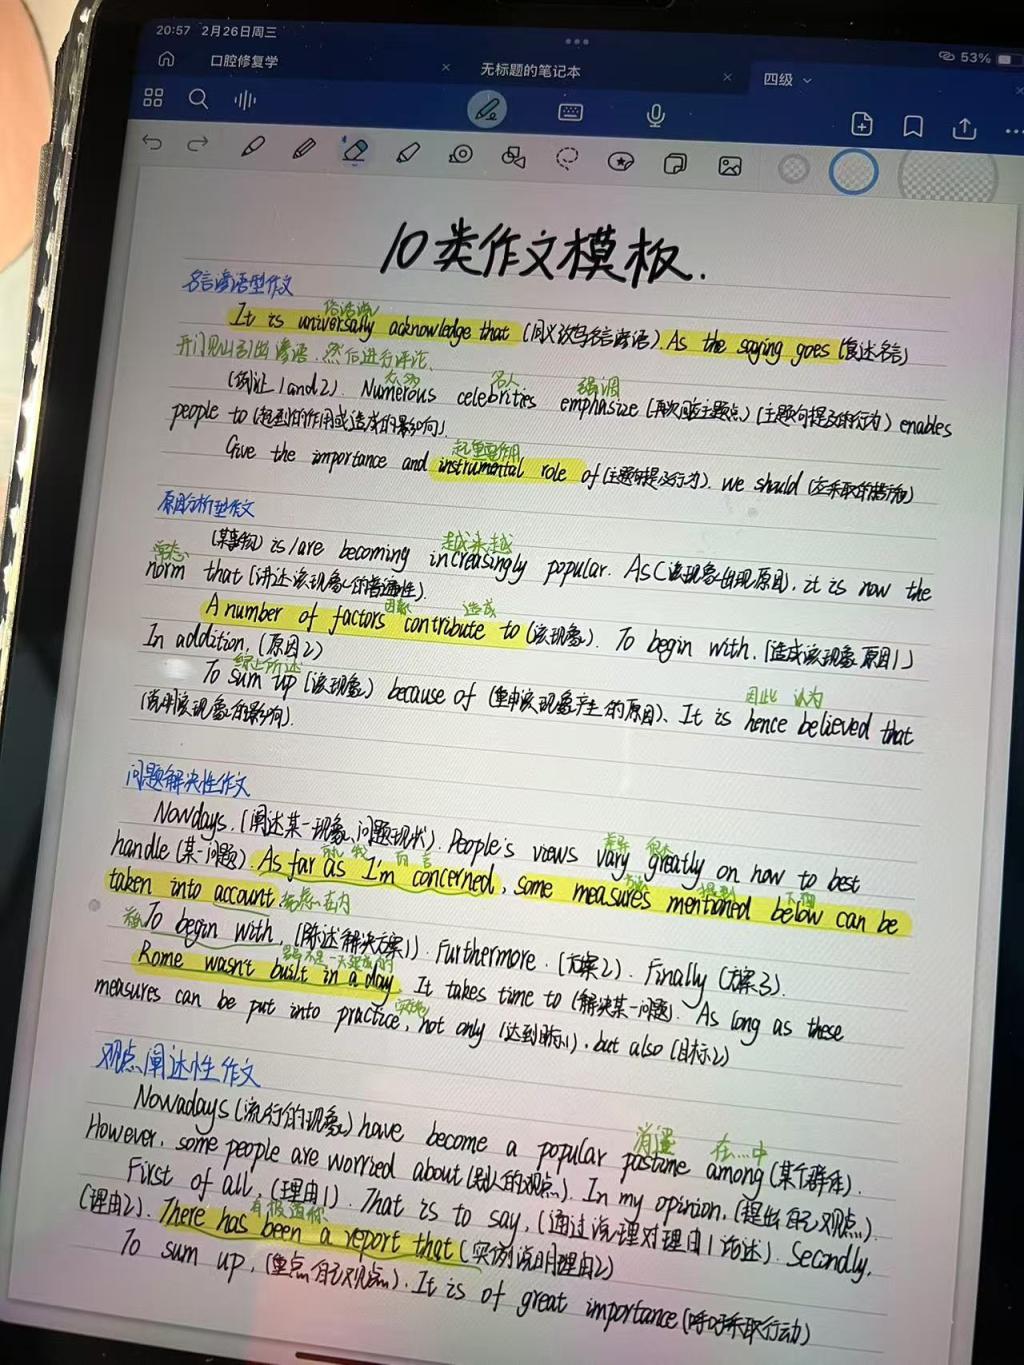 20:57 2月26日周三
53%
口腔修复学
无标题的笔记本
四级
10类作文模板.
名言谚语型作文
俗话说
It is universally acknowledge that (同义改写名言谚语). As the saying goes (复述名言)
开门见山引出谚语,然后进行评论.
众多 名人 强调
(例证1and2). Numerous celebrities emphasize (再次回应主题点)(主题句提及的行为) enables
people to (起到的作用或造成的影响).
起重要作用
Give the importance and instrumental role of (主题句提及行为). we should (应采取的措施)
原因分析型作文
越来越
(某事物) is/are becoming increasingly popular. As (该现象出现原因), it is now the
常态
norm that (讲述该现象的普遍性).
因素 造成
A number of factors contribute to (该现象). To begin with, (造成该现象原因1)
In addition, (原因2)
综上所述
To sum up (该现象) because of (重申该现象产生的原因). It is hence believed that
因此 认为
(说明该现象的影响).
问题解决性作文
Nowdays, (阐述某一现象、问题现状). People's views vary greatly on how to best
handle (某一问题). As far as I'm concerned, some measures mentioned below can be
就 我 而言
taken into account 考虑在内
To begin with, (陈述解决方案1). Furthermore, (方案2). Finally (方案3).
罗马不是一天建成的
Rome wasn't built in a day. It takes time to (解决某一问题). As long as these
measures can be put into practice, not only (达到目标1), but also (目标2)
观点阐述性作文
Nowadays (流行的现象) have become a popular pastime among (某个群体).
消遣 在…中
However, some people are worried about (别人的观点). In my opinion, (提出自己观点).
First of all, (理由1). That is to say, (通过说理对理由1论述). Secondly,
(理由2). There has been a report that (实例说明理由2)
有报道称
To sum up, (重点自己观点). It is of great importance (呼吁采取行动)